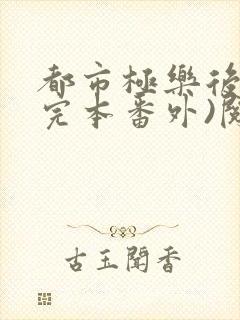 都市極樂後
完本番外)閱
古玉聞香